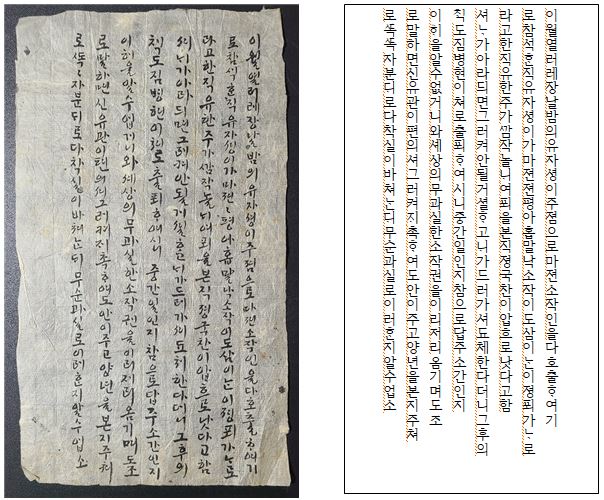 이월열러레장날밤의유자셩이주졈으로마젼소작인을다호출ᄒᆞ여기
로참석ᄒᆞᆫ직유자셩이가마젼젼평아흡말낙소작이도삼이ᄂᆞᆫ이졍퇴가ᄂᆞᆫ로
라고한직유한주가깜작놀나여피을본직졍국찬이압흐로낫다고함
셔ᄂᆞ가아라듸면그러켜안될거셜ᄒᆞ고니가드러가셔됴쳬한다더니그후의
칙도짐병현이쳐로출퇴ᄒᆞ여시니중간일인지참으로답주소간인지
이허을알수업거니와셰상의무과실한소작권을이리저리옴기며도조
로말하면신유관이편의셔그러켜지촉ᄒᆞ여도안이주고양년을본지주쳐
로쏙쏙자분듸로다착실이바쳐ᄂᆞᆫ듸무슨과실로이러ᄒᆞᆫ지알수업소